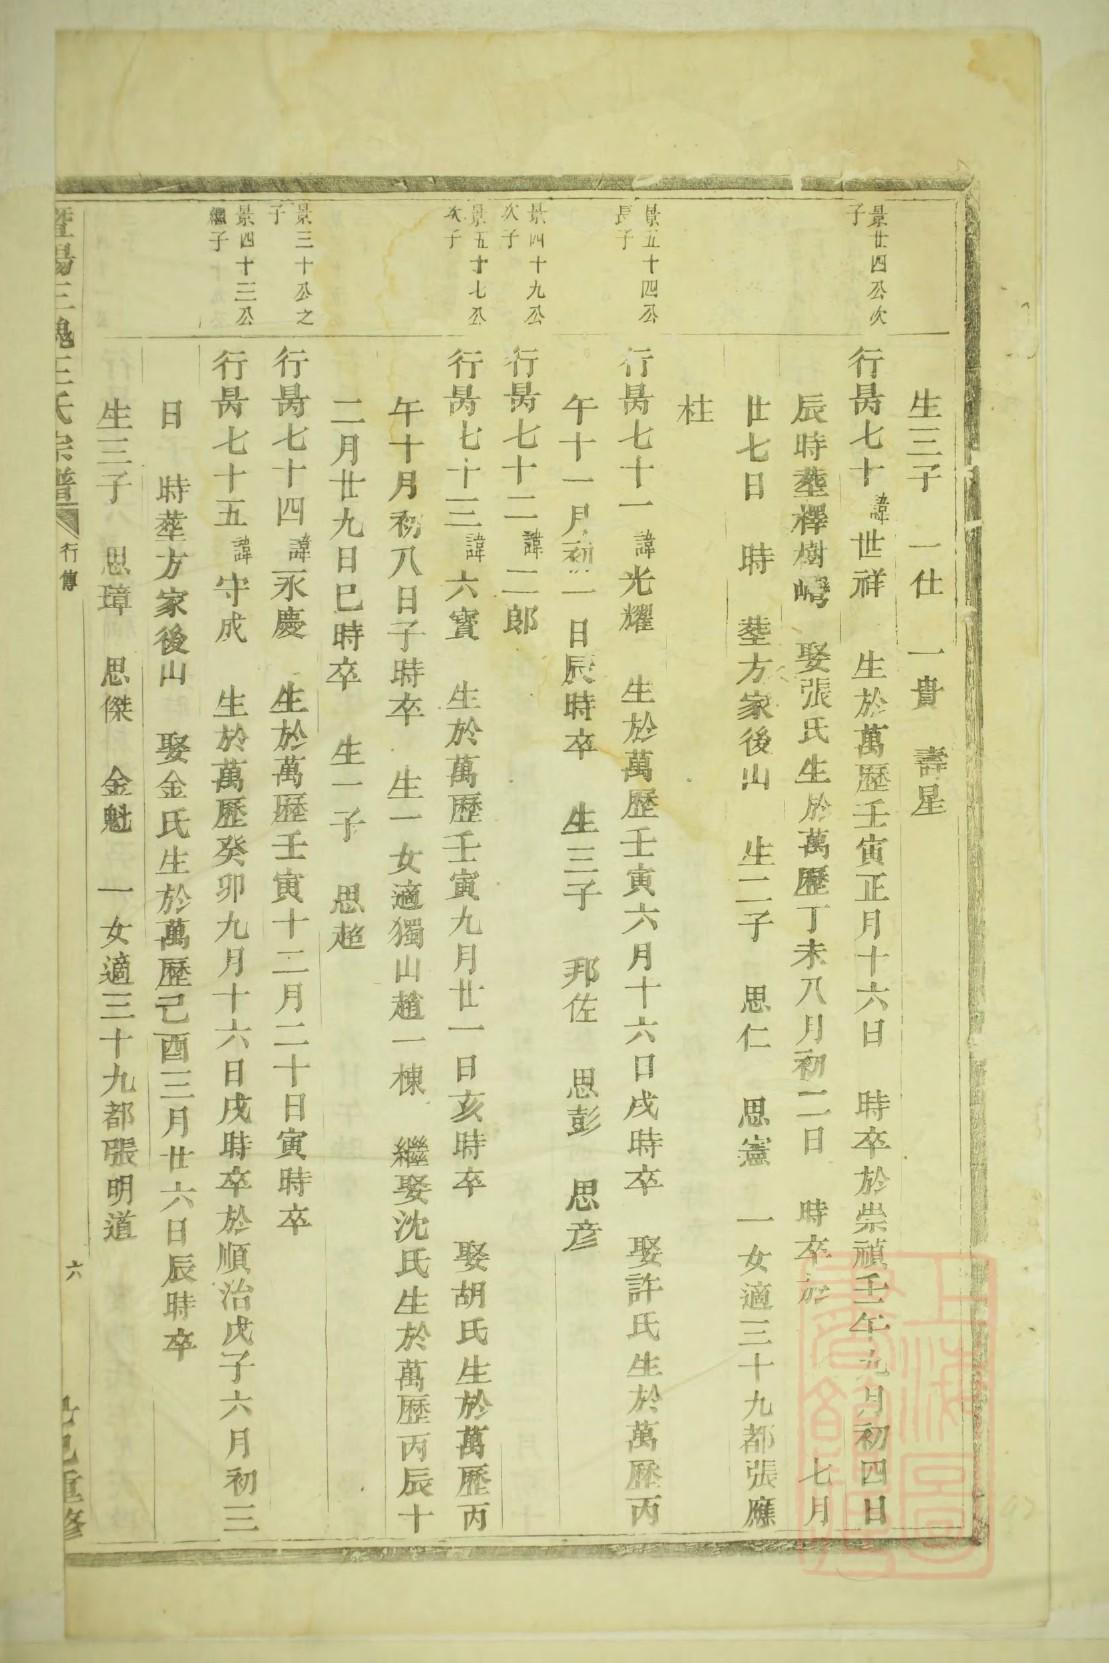 生三子 一仕 一貴 壽星
景廿四公次
子
行昺七十 諱世祥 生於萬歷壬寅正月十六日 時卒於崇禎壬午九月初四日
辰時塟檡樹嶹 娶張氏生於萬歷丁未八月初二日 時卒於 七月
廿七日 時 塟方家後山 生二子 思仁 思憲 一女適三十九都張應
柱
景五十四公
長子
行昺七十一 諱光耀 生於萬歷壬寅六月十六日戌時卒 娶許氏生於萬歷丙
午十一月初二日辰時卒 生三子 邦佐 思彭 思彦
景四十九公
次子
行昺七十二 諱二郎
景五十七公
次子
行昺七十三 諱六寳 生於萬歷壬寅九月廿一日亥時卒 娶胡氏生於萬歷丙
午十月初八日子時卒 生一女適獨山趙一棟 繼娶沈氏生於萬歷丙辰十
二月廿九日巳時卒 生一子 思趂
景三十公之
子
行昺七十四 諱永慶 生於萬歷壬寅十二月二十日寅時卒
景四十三公
繼子
行昺七十五 諱守成 生於萬歷癸卯九月十六日戌時卒於順治戊子六月初三
日 時塟方家後山 娶金氏生於萬歷己酉三月廿六日辰時卒
生三子 思璋 思傑 金魁 一女適三十九都張明道
暨陽三槐王氏宗譜 行傳 六 重修
上海圖書館藏